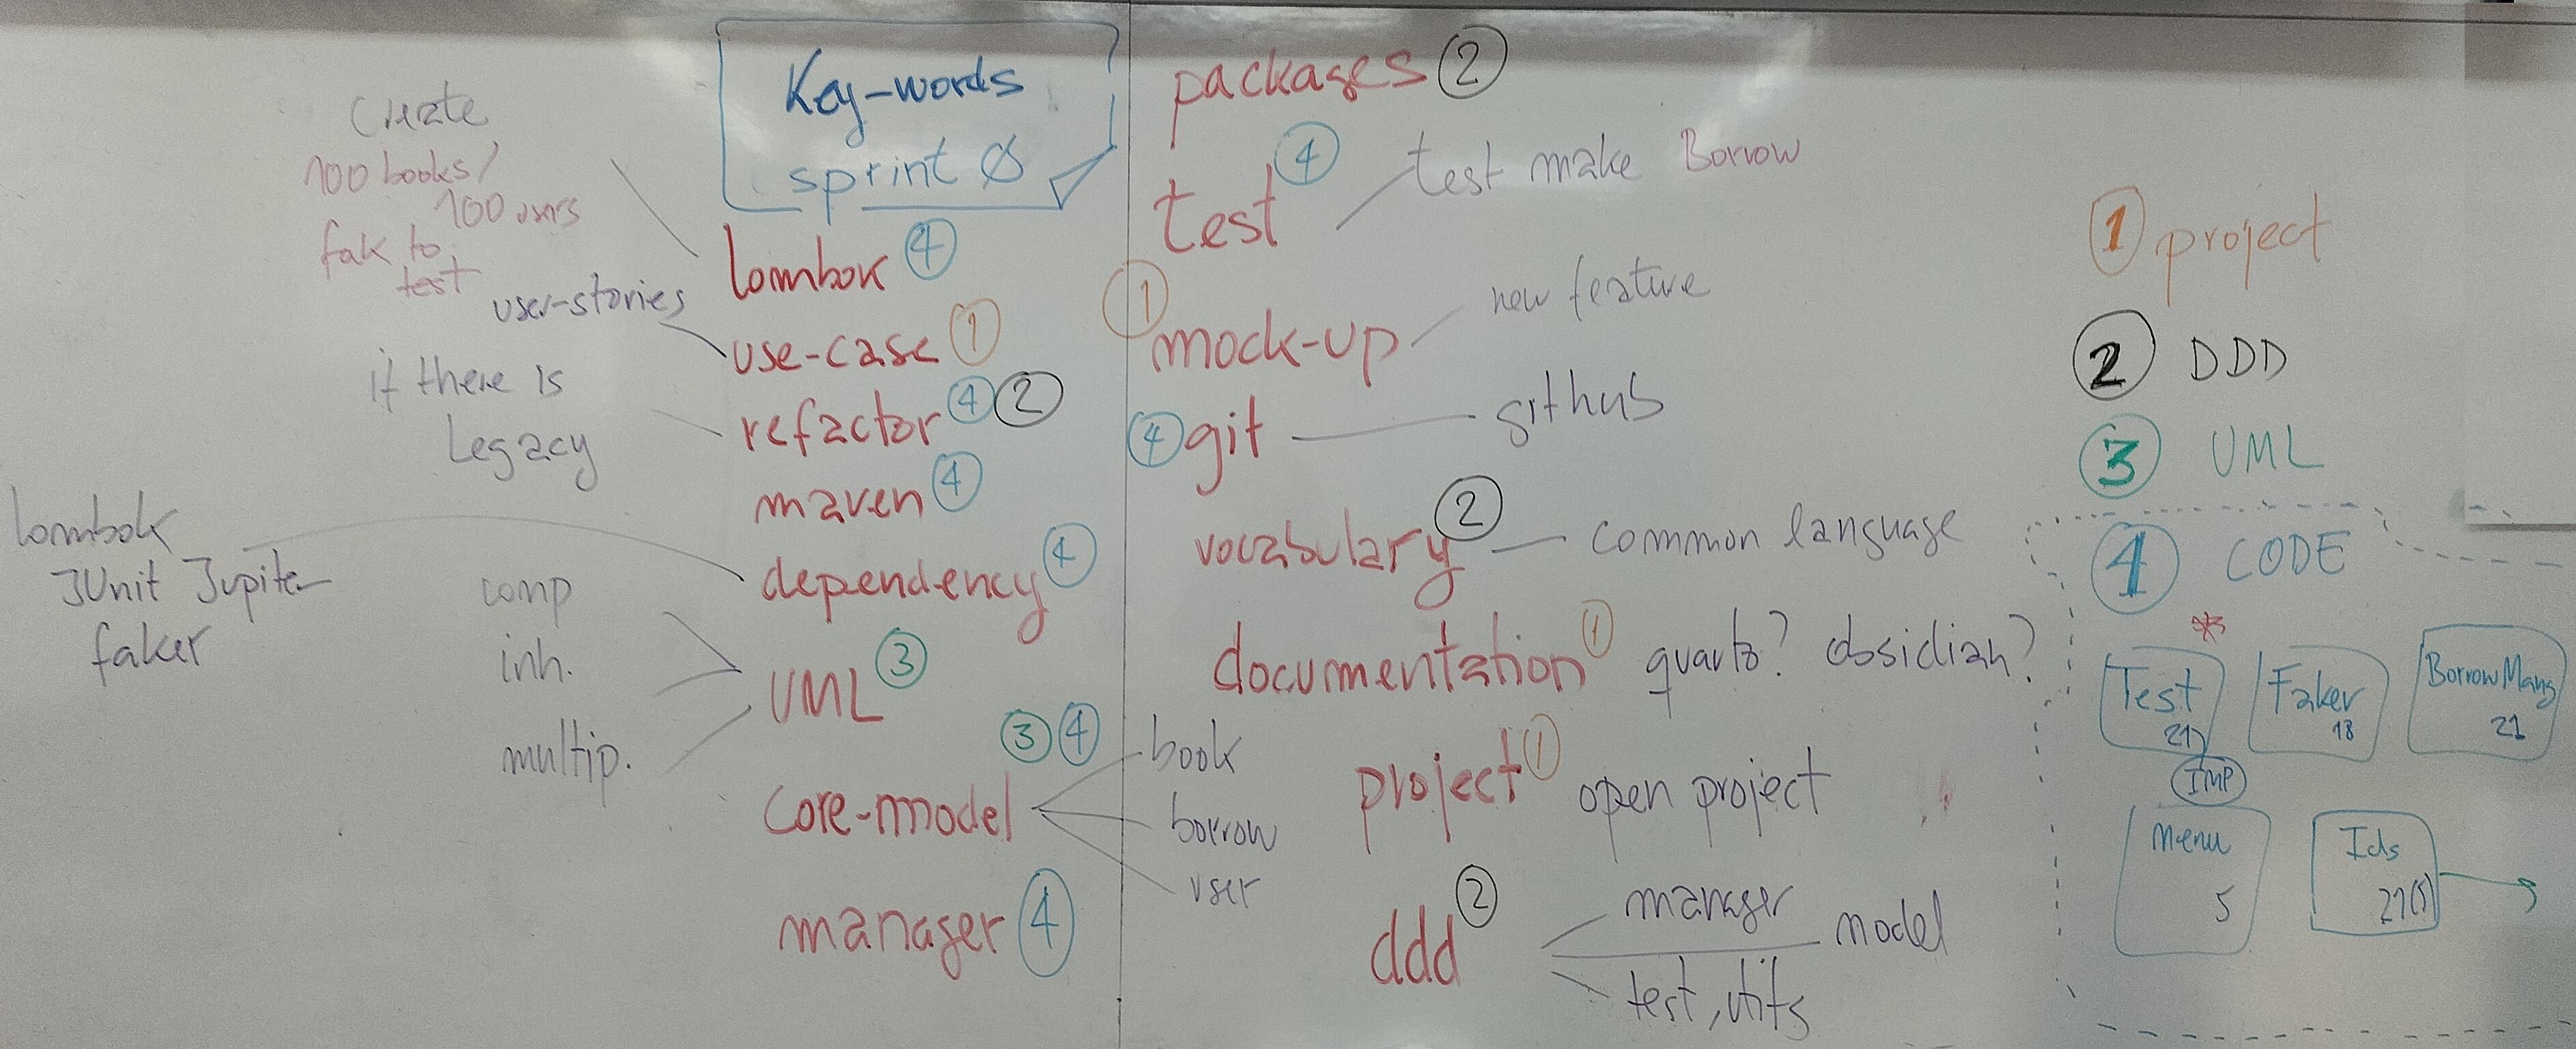 Key-words
sprint Ø
Create
100 books/
100 users
fak to
test
lombok 4
user-stories
use-case 1
if there is
Legacy
refactor 4 2
maven 4
lombok
JUnit Jupiter
faker
dependency 4
comp
inh.
multip.
UML 3
3 4
core-model
book
borrow
user
manager 4
packages 2
test 4
test make Borrow
1
mock-up
new feature
4 git
github
vocabulary 2
common language
documentation 1
quarto? obsidian?
project 1
open project
ddd 2
manager
model
test, utils
1 project
2 DDD
3 UML
4 CODE
*
Test
21
IMP
Faker
13
BorrowMang
21
Menu
5
Ids